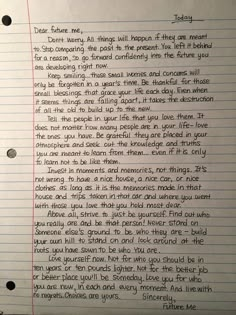 Today
Dear future me,
Don't worry. All things will happen if they are meant
to. Stop comparing the past to the present. You left it behind
for a reason, so go forward confidently into the future you
are developing right now.
Keep smiling... those small worries and concerns will
only be forgotten in a year's time. Be thankful for those
small blessings that grace your life each day. Even when
it seems things are falling apart, it takes the destruction
of all the old to build up to the new.
Tell the people in your life that you love them. It
does not matter how many people are in your life - love
the ones you have. Be grateful they are placed in your
atmosphere and seek out the knowledge and truths
you are meant to learn from them... even if it is only
to learn not to be like them.
Invest in moments and memories, not things. It's
not wrong to have a nice house, a nice car, or nice
clothes as long as it is the memories made in that
house and trips taken in that car and where you went
with those you love that you hold most dear.
Above all, strive to just be yourself. Find out who
you really are and be that person! Never stand on
someone else's ground to be who they are - build
your own hill to stand on and look around at the
roots you have sown to be who You are.
Love yourself now, not for who you should be in
ten years or ten pounds lighter. Not for the better job
or better place you'll be someday. Love you for who
you are now, in each and every moment. And live with
no regrets. Choices are yours.
Sincerely,
Future Me